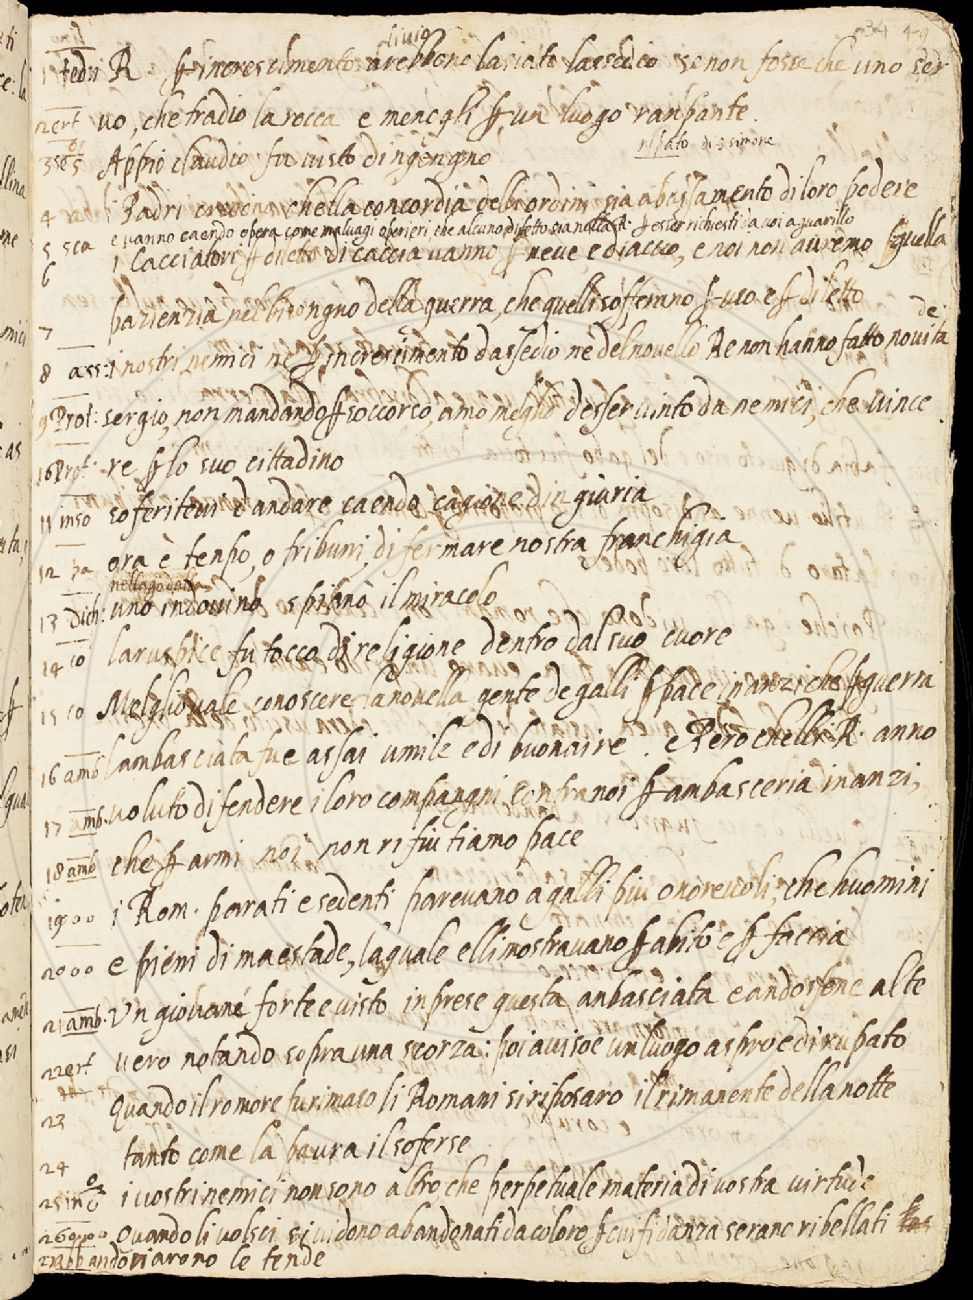 livio
34 49
1 tedii R. p increscimento arebbono lasciato lassedio se non fosse che uno ser
2 ert uo, che tradio la rocca e menogli p un luogo ranpante.
3 Appio claudio fu visto d'ingengno rifato
4 i Padri credono chella concordia delli ordini sia abassamento di loro podere
e vanno caendo opera come malvagi operieri che alcuno difetto sia nella R. p esser richiesti da voi a guarillo
5 sca i Cacciatori p diletto di caccia vanno p neve e diaccio, e noi non auremo quella
6
7 pazienzia nel bisongno della guerra, che quelli soferano p uso e p diletto
8 ass: i nostri nemici nè p increscimento dassedio nè del novello Re non hanno fatto novità de
9 Prof: sergio, non mandando p soccorso, amò meglio d'esser vinto da nemici, che vince
10 Prof: re p lo suo cittadino
11 inso soferitevi d'andare caendo cagione d'ingiuria
12 pa ora è tenpo, o tribuni, di fermare nostra franchigia
13 dich: uno indovino spianò il miracolo
14 co laruspice fu tocco di religione dentro dal suo cuore
15 co Meglio vale conoscere la novella gente de galli p pace inanzi che p guerra
16 amb lambasciata fue assai umile e di buonaire. e Pero chelli R. anno
17 amb. voluto difendere i loro compangni contra noi p ambasceria inanzi,
18 amb che p armi noi non rifiutiamo pace
19 oo i Rom. parati e sedenti parevano a galli più onorevoli, che huomini
20 oo e pieni di maestade, la quale elli mostravano p abito e p faccia
21 amb. Un giovane forte e visto inprese questa anbasciata e andossene al te
22 ert vero notando sopra una scorza: poi avisoe un luogo aspro e dirupato
23 Quando il romore fu rimaso li Romani si riposaro il rimanente della notte
24 tanto come la paura il soferse
25 in i vostri nemici non sono altro che perpetuale materia di vostra virtude
26 Quando li volsci si vidono abandonati da coloro p cui fidanza serano ribellati
27 abandoniarono le tende